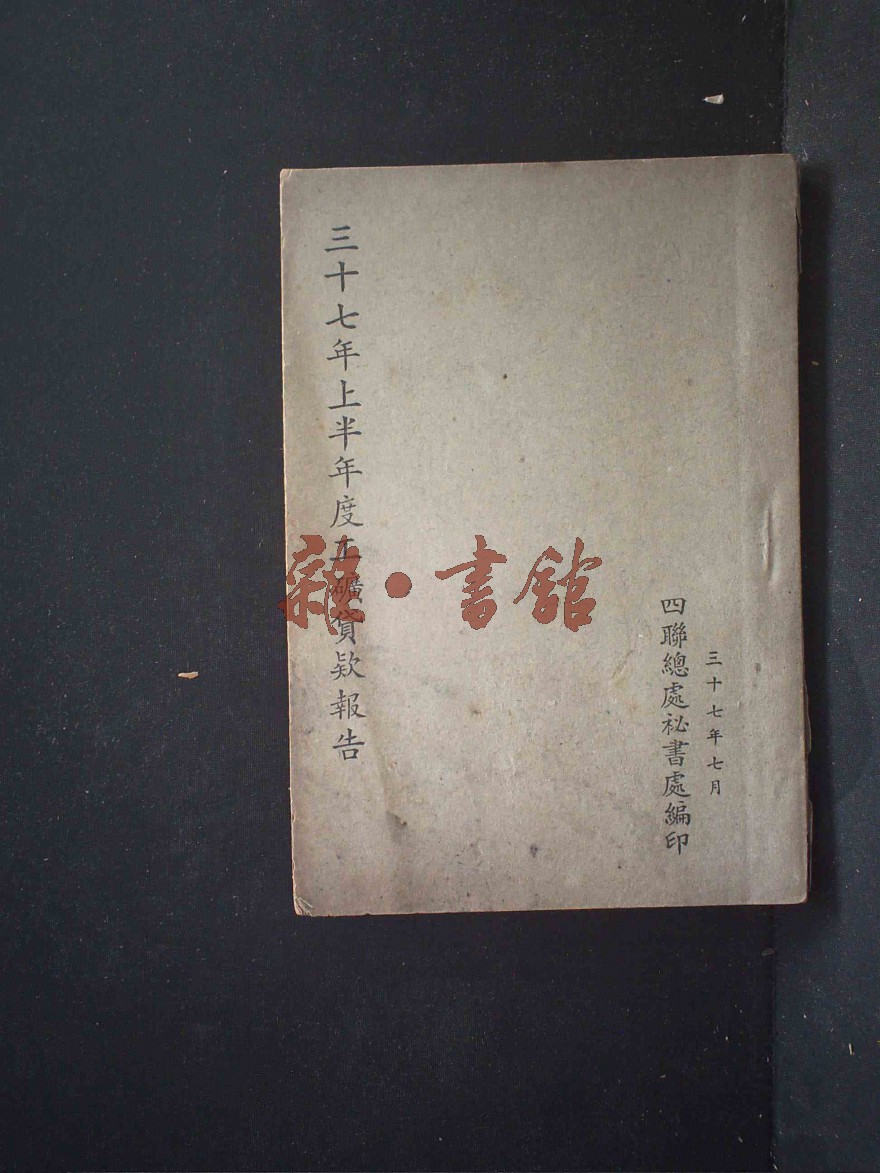 三十七年上半年度工礦貸款報告
四聯總處祕書處編印
三十七年七月
雜·書館